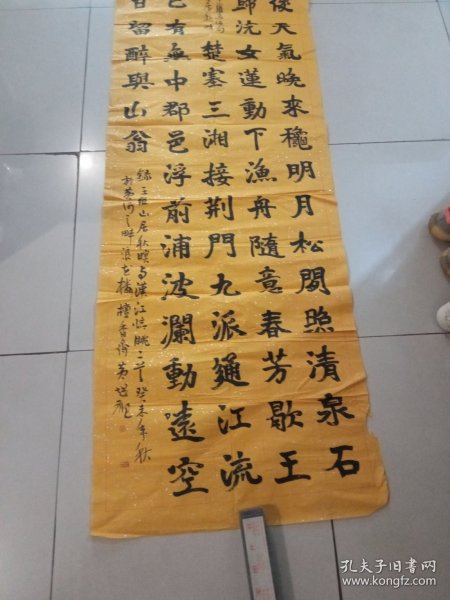 後天氣晚來穐明月松間照清泉石
歸浣女蓮動下漁舟隨意春芳歇王
楚塞三湘接荆門九派通江流
色有無中郡邑浮前浦波瀾動遠空
日留醉與山翁
錄王維山居秋暝与漢江臨眺二首癸未年秋
於黃河之畔
孔夫子旧书网
www.kongfz.com